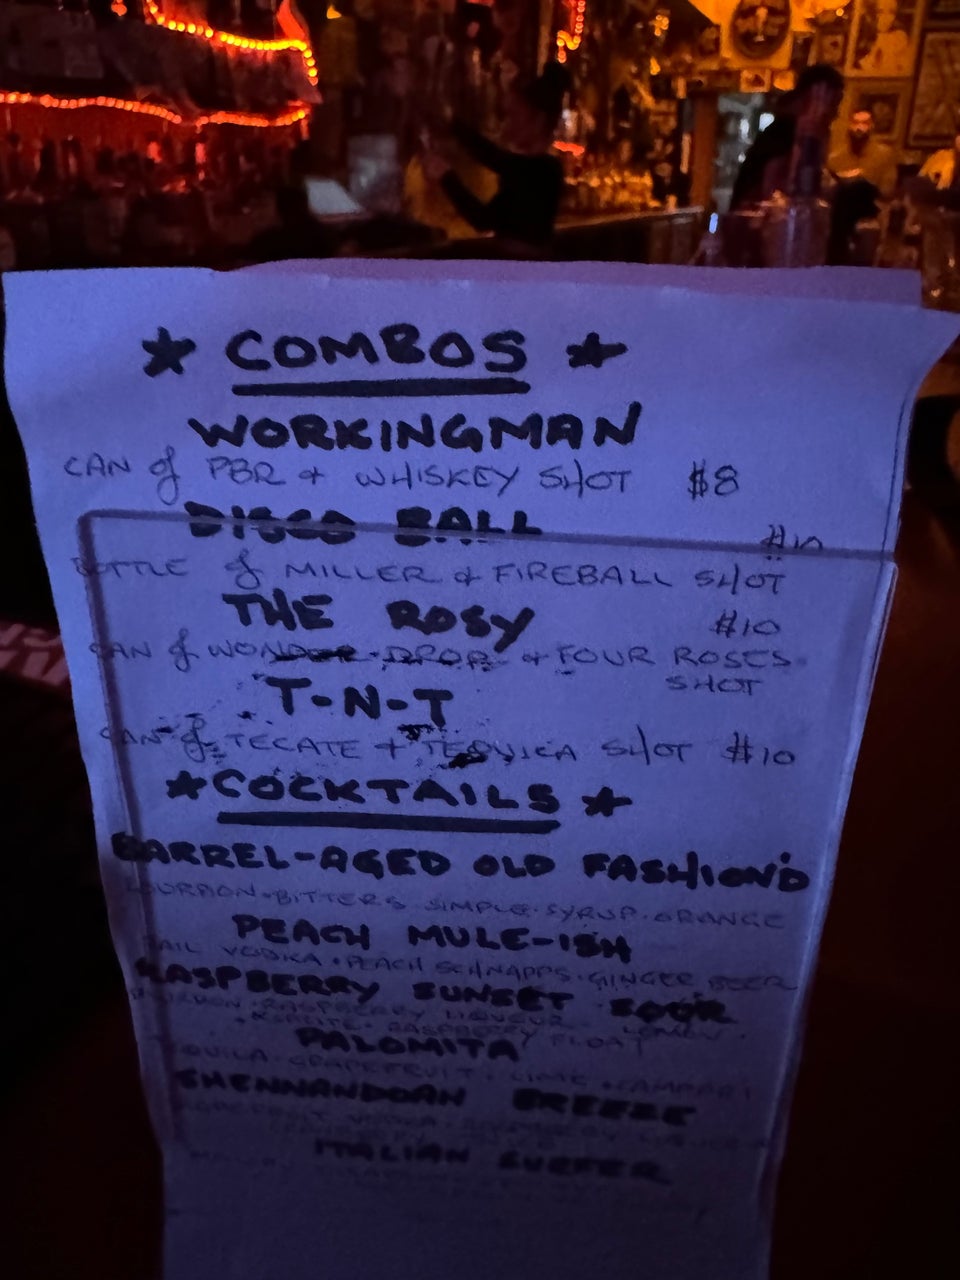 ★ COMBOS ★
WORKINGMAN
CAN of PBR & WHISKEY SHOT $8
DISCO BALL $10
BOTTLE of MILLER & FIREBALL SHOT
THE ROSY $10
CAN of WONDER DROP & FOUR ROSES
SHOT
T-N-T
CAN of TECATE & TEQUILA SHOT $10
★ COCKTAILS ★
BARREL-AGED OLD FASHION'D
BOURBON · BITTERS · SIMPLE · SYRUP · ORANGE
PEACH MULE-ISH
VODKA · PEACH SCHNAPPS · GINGER BEER
RASPBERRY SUNSET SOUR
BOURBON · RASPBERRY LIQUEUR · LEMON ·
RASPBERRY FLOAT
PALOMITA
TEQUILA · GRAPEFRUIT · LIME · CAMPARI
SHENNANDOAN BREEZE
VODKA
ITALIAN SURFER